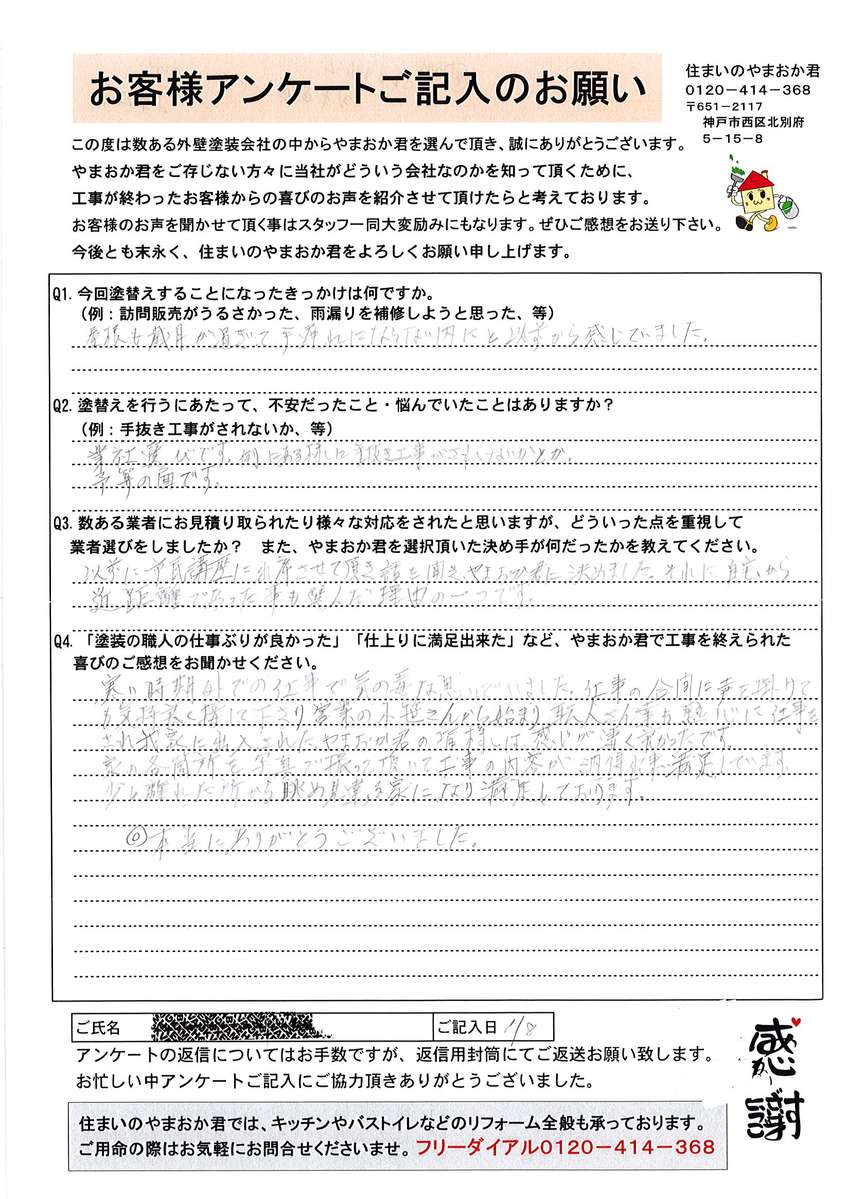 お客様アンケートご記入のお願い
住まいのやまおか君
0120-414-368
〒651-2117
神戸市西区北別府
5-15-8
この度は数ある外壁塗装会社の中からやまおか君を選んで頂き、誠にありがとうございます。
やまおか君をご存じない方々に当社がどういう会社なのかを知って頂くために、
工事が終わったお客様からの喜びのお声を紹介させて頂けたらと考えております。
お客様のお声を聞かせて頂く事はスタッフ一同大変励みにもなります。ぜひご感想をお送り下さい。
今後とも末永く、住まいのやまおか君をよろしくお願い申し上げます。
Q1. 今回塗替えすることになったきっかけは何ですか。
(例:訪問販売がうるさかった、雨漏りを補修しようと思った、等)
歳月が過ぎて手遅れにならない内にと以前から感じていました。
Q2. 塗替えを行うにあたって、不安だったこと・悩んでいたことはありますか?
(例:手抜き工事がされないか、等)
業社選びです。例にある様に手抜き工事がされないかとか。
予算の面です。
Q3. 数ある業者にお見積り取られたり様々な対応をされたと思いますが、どういった点を重視して
業者選びをしましたか? また、やまおか君を選択頂いた決め手が何だったかを教えてください。
以前に市民講座に出席させて頂き話を聞き、やまおか君に決めました。それに自宅から
近距離であった事も選んだ理由の一つです。
Q4. 「塗装の職人の仕事ぶりが良かった」「仕上りに満足出来た」など、やまおか君で工事を終えられた
喜びのご感想をお聞かせください。
寒い時期外での仕事で気の毒な思いでいました。仕事の合間に声を掛けて
も気持良く接して下さり営業の小笹さんから始まり、職人さん達も熱心に仕事を
され我家に出入されたやまおか君の皆様は感じが凄く良かったです。
家の各箇所を写真で撮って頂いて工事の内容が納得出来満足しています。
少し離れた所から眺め見違える家になり満足しております。
◎本当にありがとうございました。
ご氏名
ご記入日 1/8
アンケートの返信についてはお手数ですが、返信用封筒にてご返送お願い致します。
お忙しい中アンケートご記入にご協力頂きありがとうございました。
感謝
住まいのやまおか君では、キッチンやバストイレなどのリフォーム全般も承っております。
ご用命の際はお気軽にお問合せくださいませ。フリーダイアル0120-414-368